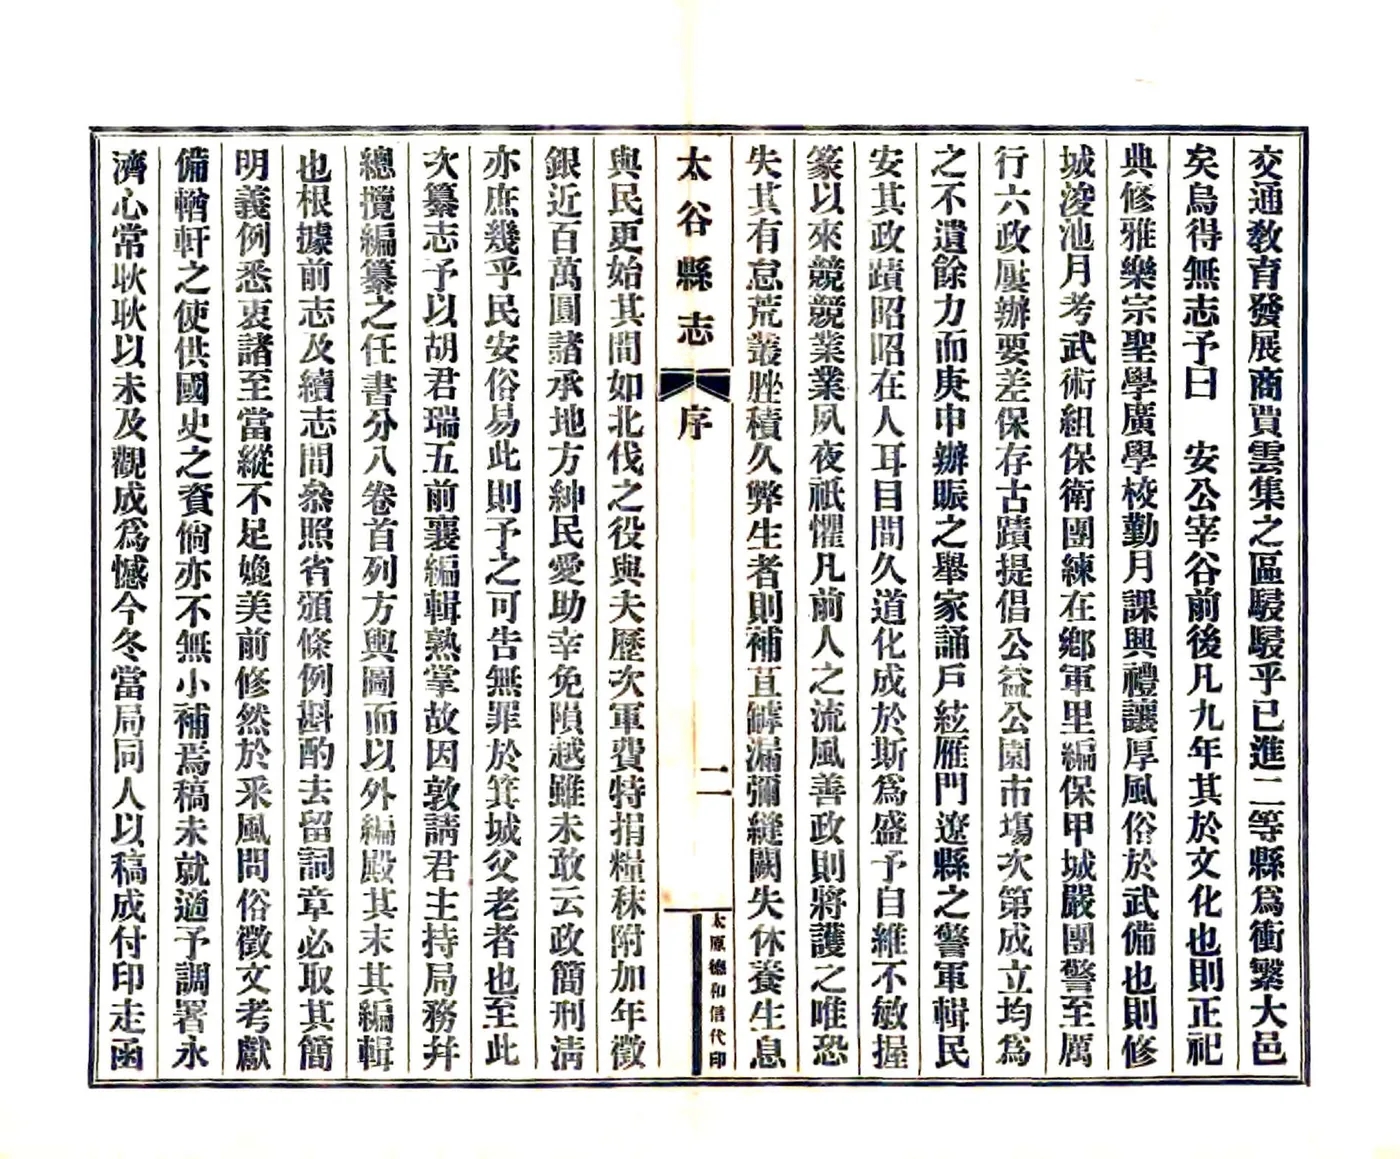 交通敎育發展商賈雲集之區駸駸乎已進二等縣爲衝繁大邑
矣烏得無志予曰　安公宰谷前後凡九年其於文化也則正祀
典修雅樂宗聖學廣學校勤月課興禮讓厚風俗於武備也則修
城浚池月考武術組保衛團練在鄉軍里編保甲城嚴團警至厲
行六政屢辦要差保存古蹟提倡公益公園市塲次第成立均爲
之不遺餘力而庚申辦賑之舉家誦戶絃雁門遼縣之警軍輯民
安其政蹟昭昭在人耳目間久道化成於斯爲盛予自維不敏握
篆以來競競業業夙夜祇懼凡前人之流風善政則將護之唯恐
失其有怠荒叢脞積久弊生者則補苴罅漏彌縫闕失休養生息
太谷縣志　序　二　太原德和信代印
與民更始其間如北伐之役與夫歷次軍費特捐糧秣附加年徵
銀近百萬圓諸承地方紳民愛助幸免隕越雖未敢云政簡刑淸
亦庶幾乎民安俗易此則予之可告無罪於箕城父老者也至此
次纂志予以胡君瑞五前襄編輯熟掌故因敦請君主持局務幷
總攬編纂之任書分八卷首列方輿圖而以外編殿其末其編輯
也根據前志及續志間叅照省頒條例斟酌去留詞章必取其簡
明義例悉衷諸至當縱不足媲美前修然於釆風問俗徵文考獻
備輶軒之使供國史之資倘亦不無小補焉稿未就適予調署永
濟心常耿耿以未及觀成爲憾今冬當局同人以稿成付印走函